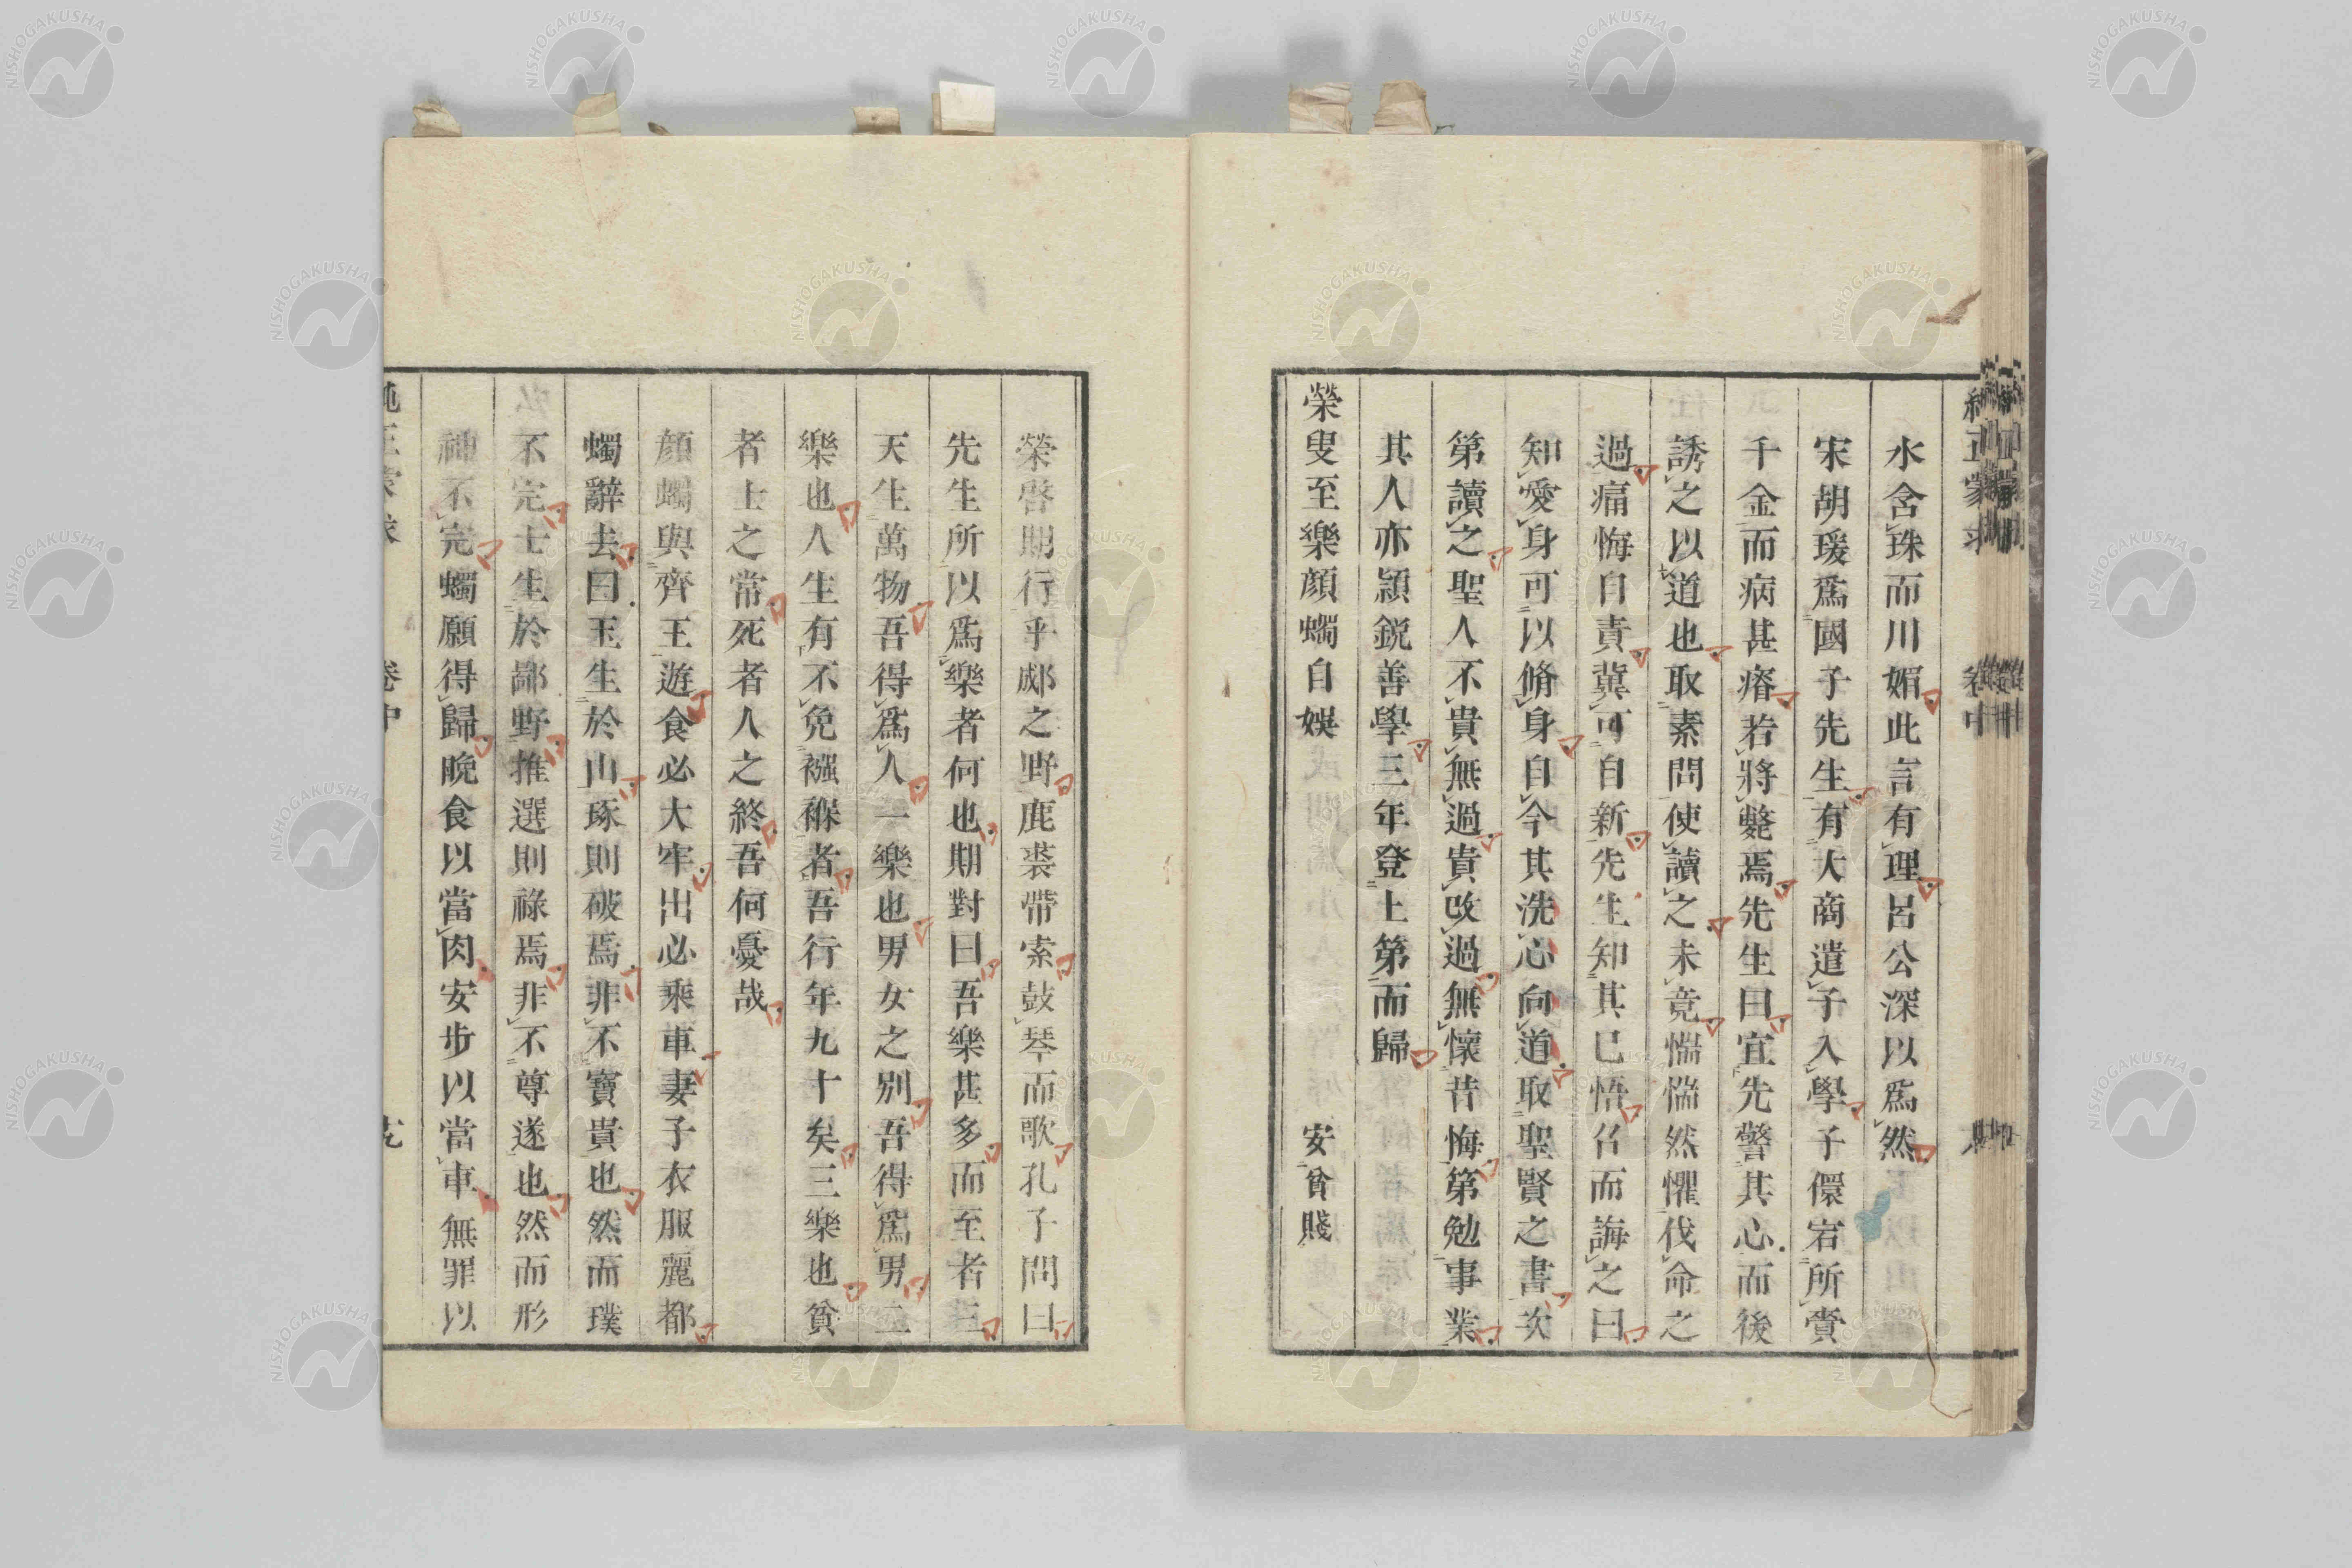 水含珠而川媚此言有理呂公深以爲然
宋胡瑗爲國子先生有大商遣子入學子儇宕所賫
千金而病甚瘠若將斃焉先生曰宜先警其心而後
誘之以道也取素問使讀之未竟惴惴然懼伐命之
過痛悔自責冀可自新先生知其已悟召而誨之曰
知愛身可以脩身自今其洗心向道取聖賢之書次
第讀之聖人不貴無過貴改過無懷昔悔第勉事業
其人亦穎鋭善學三年登上第而歸
榮叟至樂顔蠋自娯 安貧賤
榮啓期行乎郕之野鹿裘帶索鼓琴而歌孔子問曰
先生所以爲樂者何也期對曰吾樂甚多而至者三
天生萬物吾得爲人一樂也男女之別吾得爲男二
樂也人生有不免襁褓者吾行年九十矣三樂也貧
者士之常死者人之終吾何憂哉
顔蠋與齊王遊食必大牢出必乘車妻子衣服麗都
蠋辭去曰玉生於山琢則破焉非不寶貴也然而璞
不完士生於鄙野推選則祿焉非不尊遂也然而形
神不完蠋願得歸晩食以當肉安步以當車無罪以
卷中
NISHOGAKUSHA